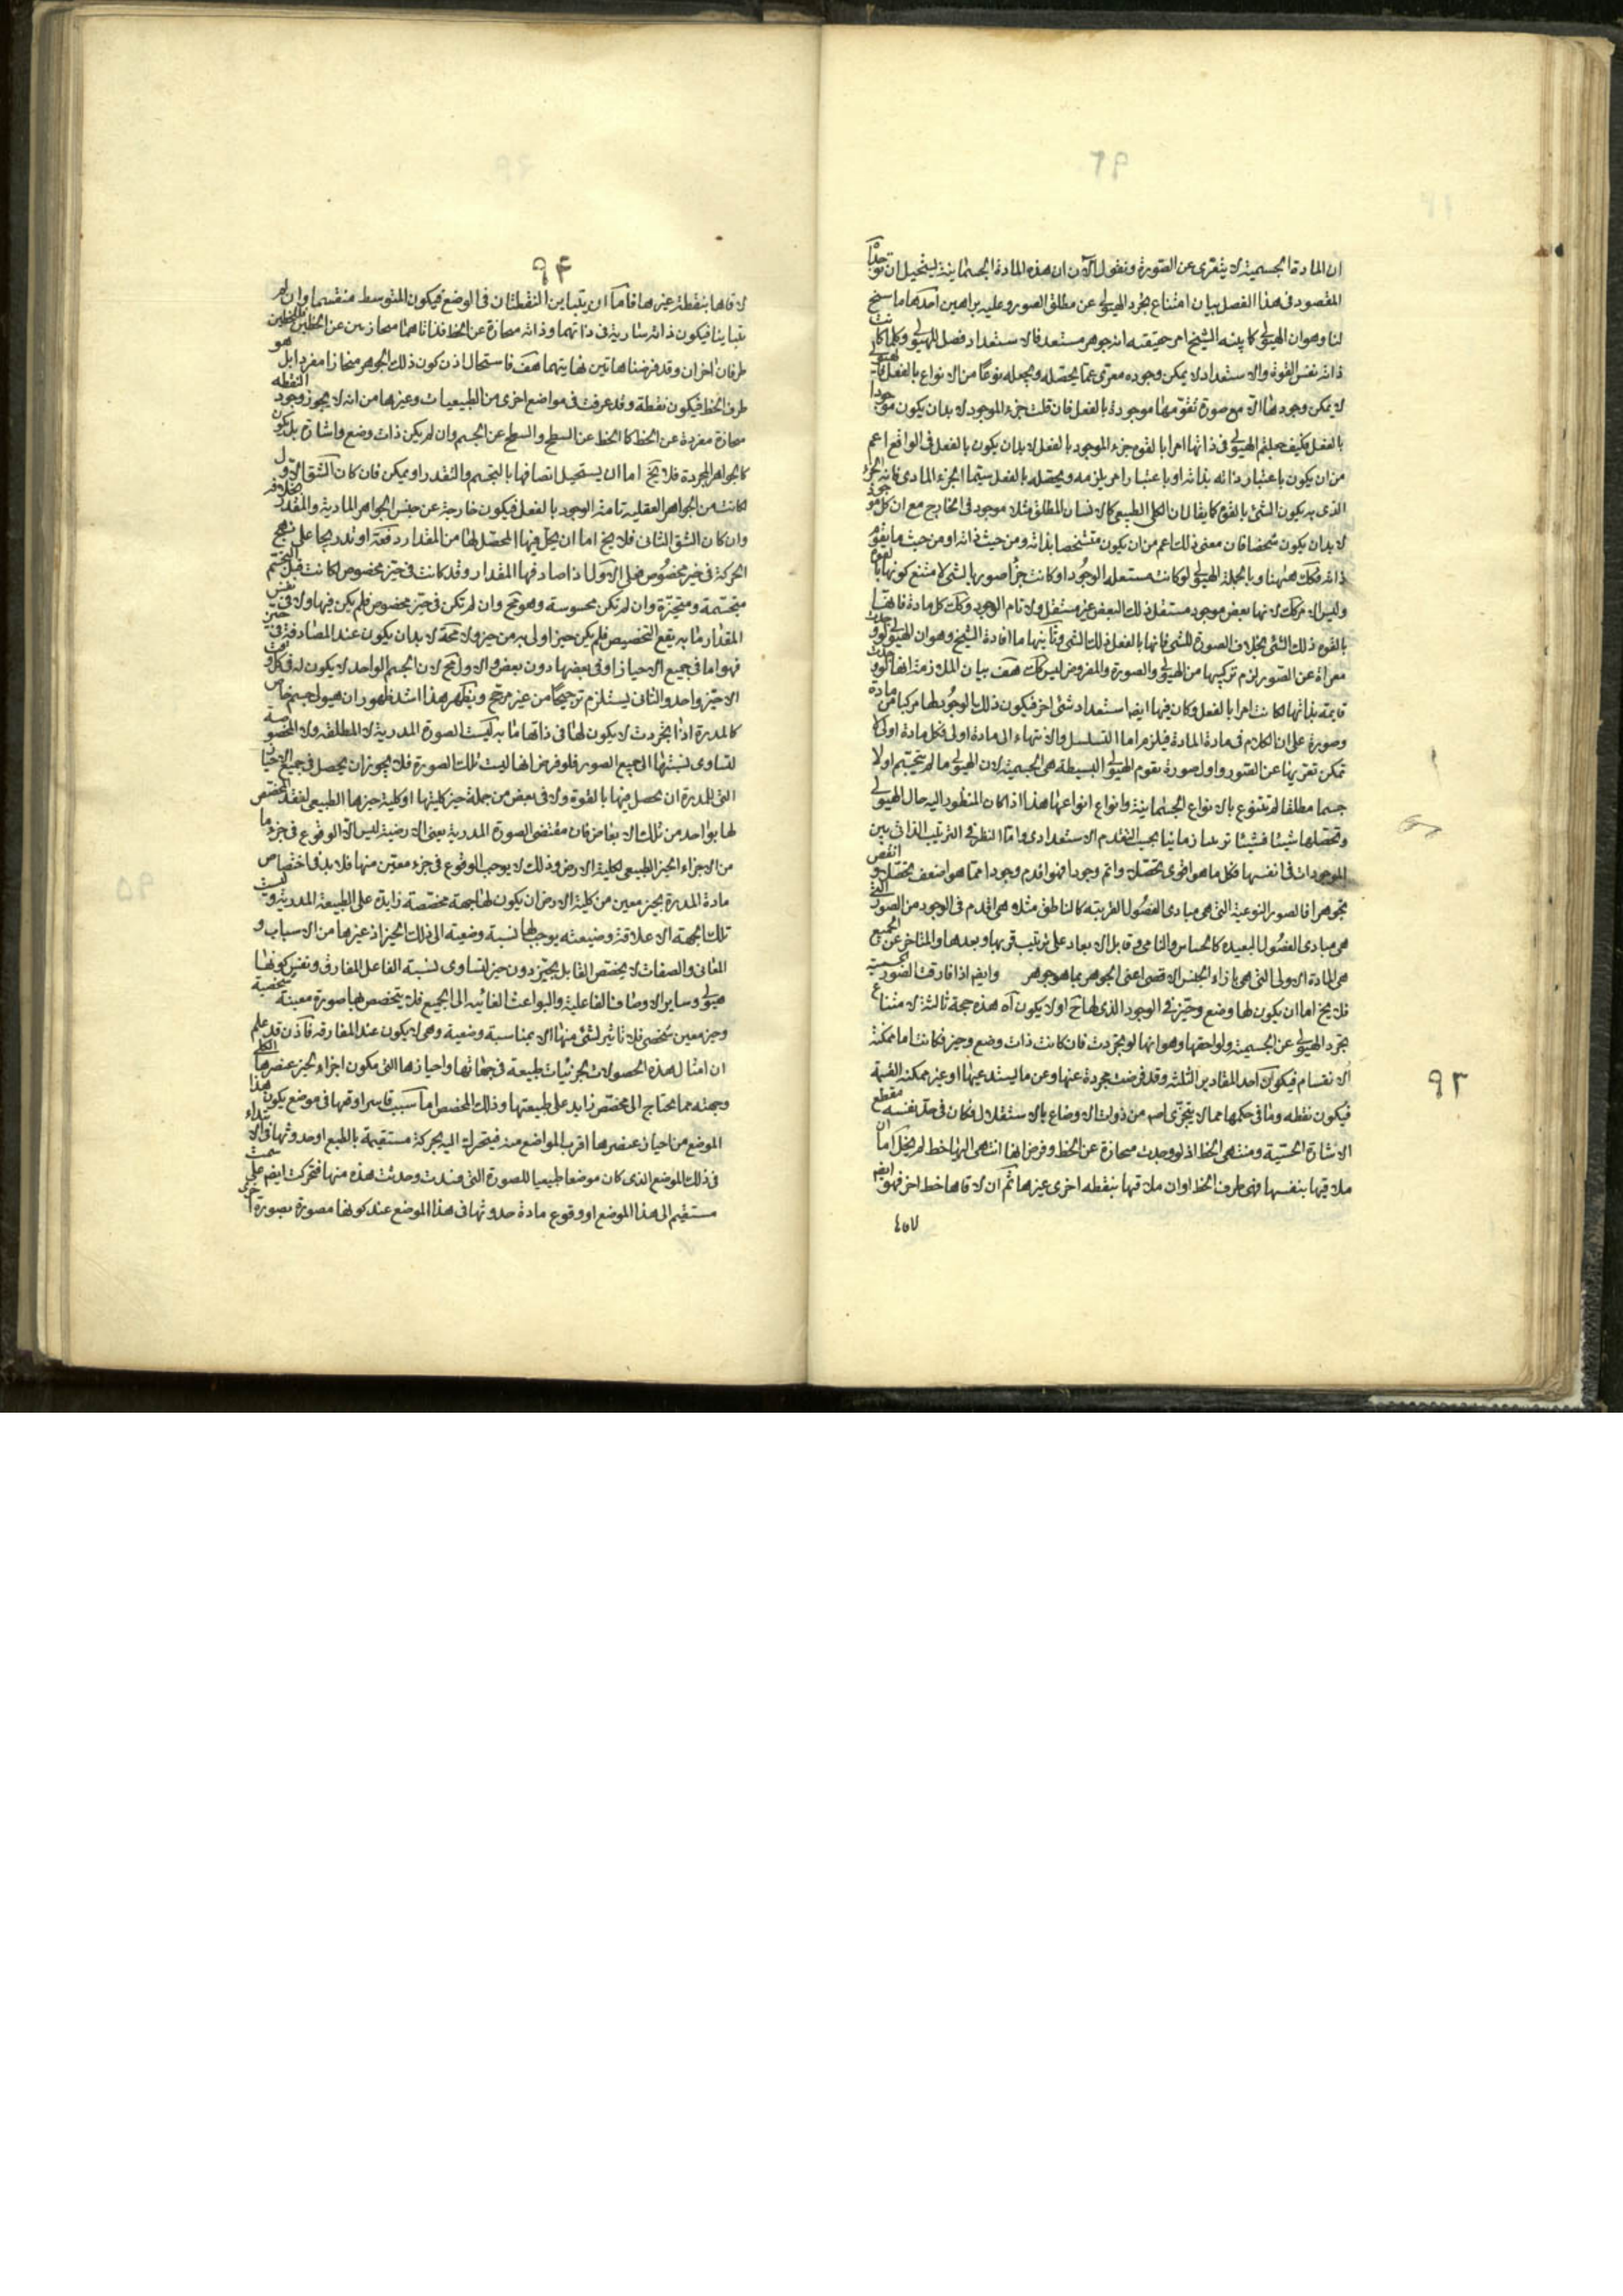 ان المادة الجسمية لا يتعرى عن الصورة ونقول الآن ان هذه المادة الجسمانية يستحيل ان توجد
المقصود فى هذا الفصل بيان امتناع تجرد الهيولى عن مطلق الصورة وعليه براهين احدها ما سنح
لنا وهو ان الهيولى كما بينه الشيخ امر حقيقته انه جوهر مستعد فالاستعداد فصل للهيولى وكلما كانت
ذاته نفس القوة والاستعداد لا يمكن وجوده معرى عما يحصله ويجعله نوعا من الانواع بالفعل فالهيولى
لا يمكن وجودها الا مع صورة تقومها موجودة بالفعل فان قلت جزء الموجود لا بد ان يكون موجودا
بالفعل فكيف جعلتم الهيولى فى ذاتها امرا بالقوة جزء الموجود بالفعل لا بد ان يكون بالفعل فى الواقع اعم
من ان يكون باعتبار ذاته بذاته او باعتبار امر يلزمه ويحصله بالفعل سيما الجزء المادى فانه الجزء
الذى به يكون الشئ بالقوة كما يقال ان الكلى الطبيعى كالانسان المطلق مثلا موجود فى الخارج مع ان كل موجود
لا بد ان يكون شخصا فان معنى ذلك اعم من ان يكون متشخصا بذاته ومن حيث ذاته او من حيث ما يقوم
ذاته فكك هيهنا وبالجملة الهيولى لو كانت مستعملة الوجود او كانت جزأ صوريا لشئ لامتنع كونها بالقوة
وليس الامر كك لانها بعض موجود مستقل ذلك البعض غير مستقل ولا تام الوجود وكك كل مادة فانها
بالقوة ذلك الشئ بخلاف الصورة للشئ فانها بالفعل ذلك الشئ وثانيها ما افاده الشيخ وهو ان الهيولى لو وجدت
معراة عن الصور لزم تركيبها من الهيولى والصورة والمفروض ليس كك هف بيان الملازمة انها لو وجدت
قايمة بذاتها لكانت امرا بالفعل وكان فيها ايضا استعداد شئ اخر فيكون ذلك بالوجود لها مركبا من مادة
وصورة على ان الكلام فى مادة المادة فيلزم اما التسلسل والانتهاء الى مادة اولى فكل مادة اولى لا
تمكن تعريها عن الصور واول صورة تقوم الهيولى البسيطة هى الجسمية لان الهيولى ما لم تتجسم اولا
جسما مطلقا لم تتنوع بالانواع الجسمانية وانواع انواعها هذا اذا كان المنظور اليه حال الهيولى
وتحصلها شيئا فشيئا نوعا زمانيا بحسب التقدم الاستعدادى واما النظر فى الترتيب الذاتى بين
الموجودات فى انفسها فكل ما هو اقوى تحصلا واتم وجودا فهو اقدم وجودا مما هو اضعف تحصلا وانقص
تجوهرا فالصور النوعية التى هى مبادى الفصول القريبة كالناطق مثلا هى اقدم فى الوجود من الصور التى
هى مبادى الفصول البعيدة كالحساس والنامى وقابل الابعاد على ترتيب قربها وبعدها والمتاخر عن الجميع
هى المادة الاولى التى هى بازاء الجنس الاقصى اعنى الجوهر بما هو جوهر وايضا اذا فارقت الصورة الجسمية
فلا يخ اما ان يكون لها وضع وحيز فى الوجود الذى لها ح او لا يكون آه هذه حجة ثالثة لامتناع
تجرد الهيولى عن الجسمية ولواحقها وهو انها لو تجردت فان كانت ذات وضع وحيز فكانت اما ممكنة
الانقسام فيكون احد المقادير الثلثة وقد فرضت مجردة عنها وعن ما يستدعيها او غير ممكنة القسمة
فيكون نقطه وما فى حكمها مما لا يتجزى اصلا من ذوات الاوضاع بالاستقلال فكان فى حد نفسه مقطع
الاشارة الحسية ومنتهى الخط اذ لو وجدت منحازة عن الخط وفرض انها انتهى اليها خط لم يخل اما ان
ملاقيها بنفسها فهى طرف الخط او ان ملاقيها بنقطه اخرى غيرها ثم ان لاقاها خط اخر فهو ايضا
٩٣
٩۴
لاقاها بنقطة غيرها فاما ان يتباين النقطتان فى الوضع فيكون المتوسط منقسما وان لم
يتباينا فيكون ذاته سارية فى ذاتهما وذاته منحازة عن الخط فذاتاهما منحازتين عن الخطين فللخطين
طرفان اخران وقد فرضناهاتين نهايتهما هف فاستحال اذن كون ذلك الجوهر منحازا مفردا بل هو
طرف الخط فيكون نقطة وقد عرفت فى مواضع اخرى من الطبيعيات وغيرها من انه لا يجوز وجود النقطه
منحازة مفردة عن الخط كالخط عن السطح والسطح عن الجسم وان لم يكن ذات وضع واشارة بل يكون
كالجواهر المجردة فلا يخ اما ان يستحيل اتصافها بالتجسم والتقدر او يمكن فان كان الشق الاول
لكانت من الجواهر العقلية تامة الوجود بالفعل فيكون خارجة عن جنس الجواهر المادية والمقدر خلافه
وان كان الشق الثانى فلا يخ اما ان يحل فيها المحصل لها من المقدار دفعة او تدريجا على نهج
الحركة فى حيز مخصوص فعلى الاول اذا صادفها المقدار وقد كانت فى حيز مخصوص لكانت قبل التجسم
متجسمة ومتحيزة وان لم تكن محسوسة وهو مح وان لم تكن فى حيز مخصوص فلم يكن فيها ولا فى نفس
المقدار ما به يقع التخصيص فلم يكن حيز اولى به من حيز ولا محة لا بد ان يكون عند المصادفة فى حيز
فهو اما فى جميع الاحياز او فى بعضها دون بعض والاول مح لان الجسم الواحد لا يكون له فى كل وقت
الا حيز واحد والثانى يستلزم ترجيحا من غير مرجح وينكهر هذا اشد ظهور ان هيولى جسم خاص
كالمدرة اذا تجردت لا يكون لها فى ذاتها ما به اكيت الصورة المدرية لا المطلقة ولا المخصوصة
لتساوى نسبتها الى جميع الصور فلو فرض انها لبست تلك الصورة فلا يجوز ان يحصل فى جميع الاحياز
التى للمدرة ان يحصل فيها بالقوة ولا فى بعض من جملة حيز كليتها او كلية حيزها الطبيعى لفقد المخصص
لها بواحد من تلك الابعاض فان مقتضى الصورة المدرية يعنى الارضية ليس الا الوقوع فى جزء ما
من الاجزاء الحيز الطبيعى لكلية الارض وذلك لا يوجب الوقوع فى جزء معين منها فلا بد فى اختصاص
مادة المدرة بحيز معين من كلية الارض ان يكون لها جهة مخصصة زايدة على الطبيعة المدرية وليست
تلك الجهة الا علاقة وضعية يوجب لها نسبة وضعية الى ذلك الحيز اذ غيرها من الاسباب و
المعانى والصفات لا يخصص القابل بحيز دون حيز لتساوى نسبة الفاعل المفارق ونفس كونها
هيولى وساير الاوصاف الفاعلية والبواعث الغائية الى الجميع فلا يتخصص بها صورة معينة شخصية
وحيز معين شخصى فلا تاثير لشئ منها الا بمناسبة وضعية وهى لا يكون عند المفارقة فاذن قد علم
ان امثال هذه الحصولات لجزئيات طبيعة فى جهاتها واحيازها التى يكون اجزاء لحيز عنصرها الكلى
وجهته مما يحتاج الى مخصص زايد على طبيعتها وذلك المخصص اما سبب قاسر اوقعها فى موضع يكون هذا
الموضع من احياز عنصرها اقرب المواضع منه فيتحرك اليه بحركة مستقيمة بالطبع او حدوثها فى الابتداء
فى ذلك الموضع الذى كان موضعا طبيعيا للصورة التى فسدت وحدثت هذه منها فتحركت ايضا على سمت
مستقيم الى هذا الموضع او وقوع مادة حدوثها فى هذا الموضع عند كونها مصورة بصورة اخرى